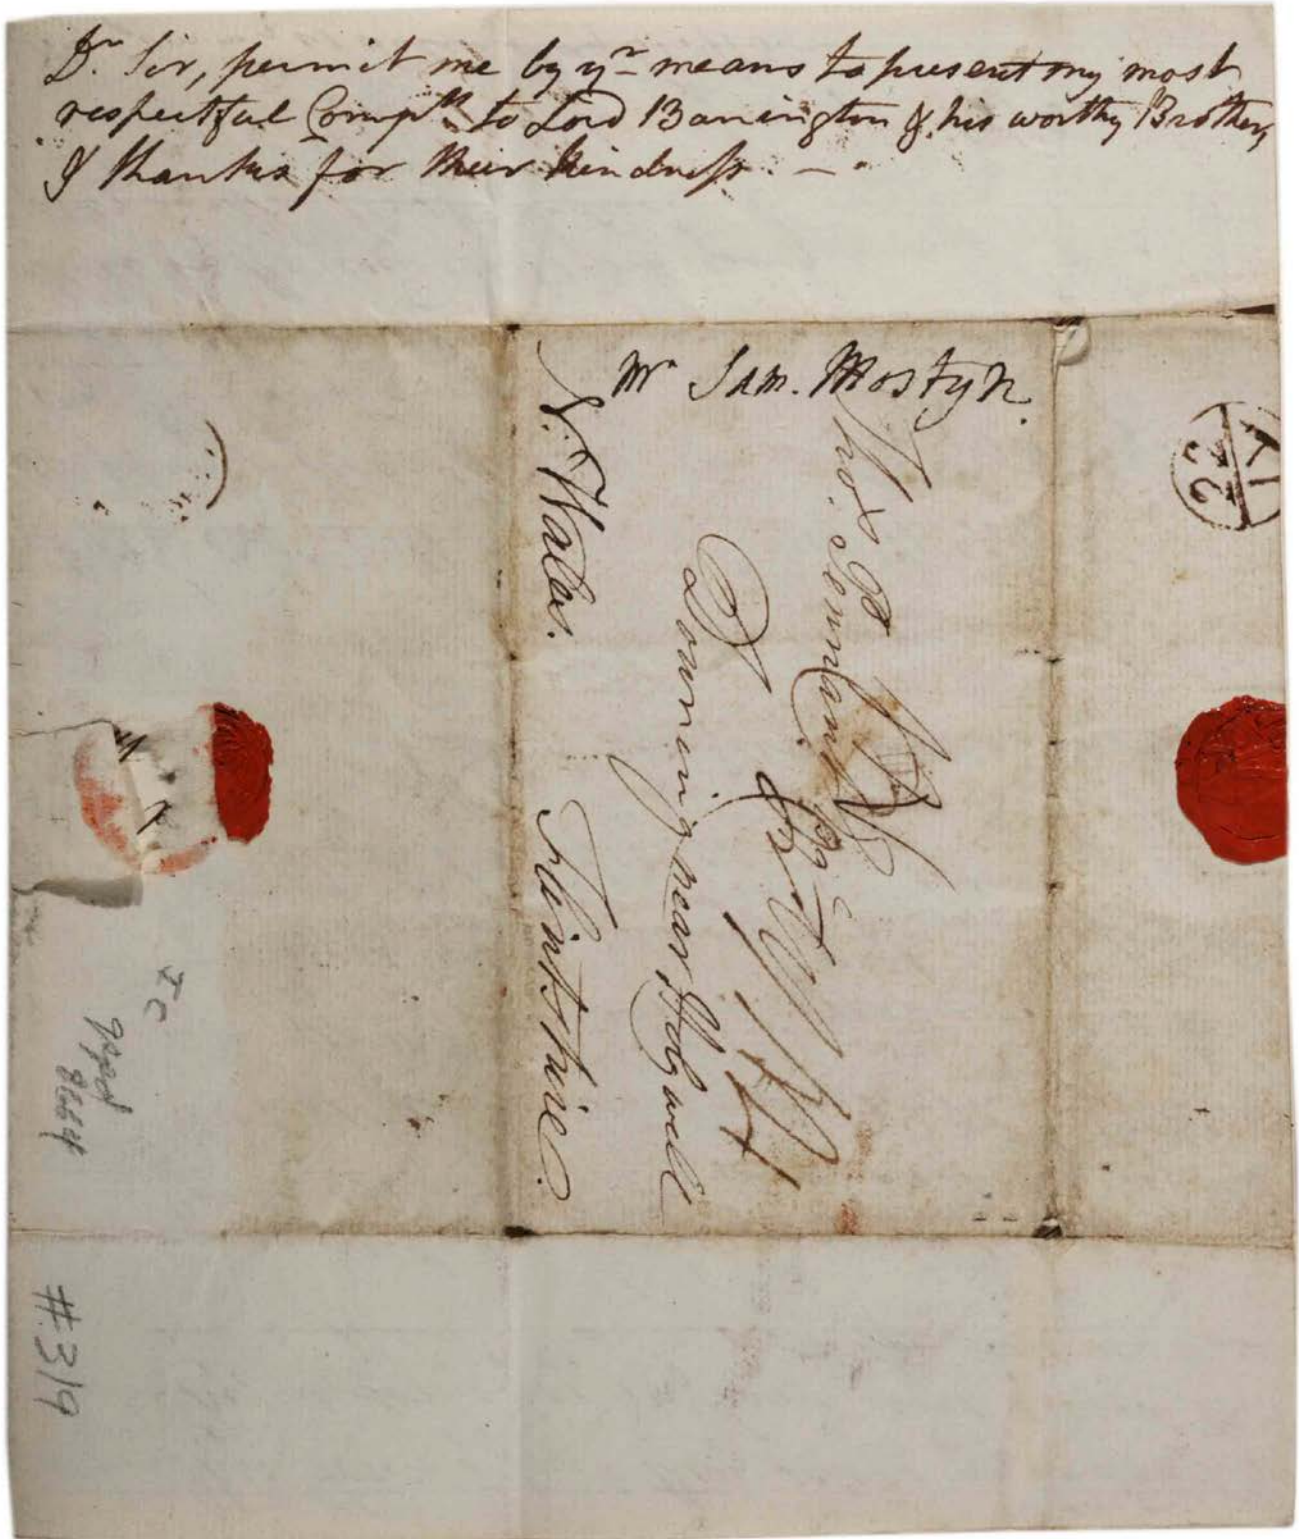 Dr. Sir, permit me by yr means to present my most
respectful Compts. to Lord Barrington & his worthy Brothers,
& thanks for their kindness. —
Mr Sam. Mostyn.
Thos Pennant Esqr
Downing near Holywell
Flintshire.
N. Wales.
#319